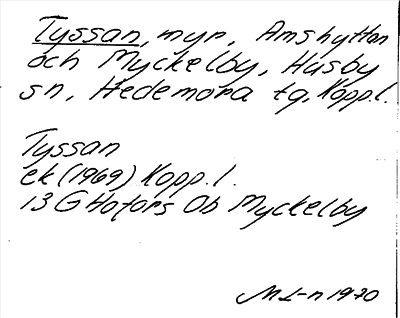 Tyssan, myr, Amshyttan
och Myckelby, Husby
sn, Hedemora tg, Kopp.l.
Tyssan
ek (1969) Kopp.l.
13 G Hofors Ob Myckelby
M L-n 1970